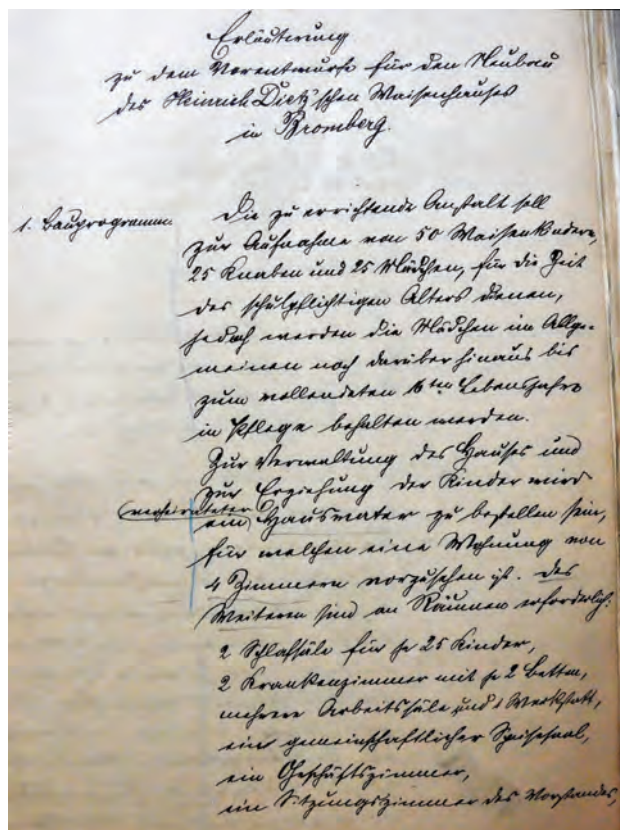 Erläuterung
zu dem Vorentwurfe für den Neubau
des Heinrich Dietz'schen Waisenhauses
in Bromberg.
1. Bauprogramm.
Die zu errichtende Anstalt soll
zur Aufnahme von 50 Waisenkindern,
25 Knaben und 25 Mädchen, für die Zeit
des schulpflichtigen Alters dienen,
jedoch werden die Mädchen im Allge-
meinen noch darüber hinaus bis
zum vollendeten 16ten Lebensjahre
in Pflege behalten werden.
Zur Verwaltung des Hauses und
zur Erziehung der Kinder wird
(verheirateter)
ein Hausvater zu bestellen sein,
für welchen eine Wohnung von
4 Zimmern vorzusehen ist. Des
Weiteren sind an Räumen erforderlich:
2 Schlafsäle für je 25 Kinder,
2 Krankenzimmer mit je 2 Betten,
mehrere Arbeitssäle und 1 Werkstatt,
ein gemeinschaftlicher Speisesaal,
ein Geschäftszimmer,
ein Sitzungszimmer des Vorstandes,